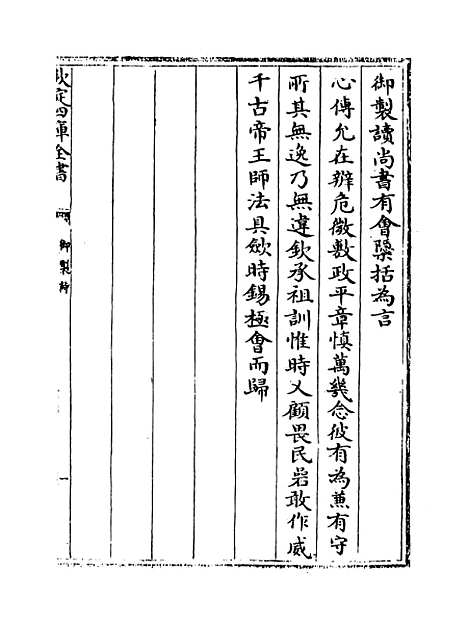 御製讀尚書有會櫽括為言
心傳允在辨危微敷政平章慎萬幾念彼有為兼有守
所其無逸乃無違欽承祖訓惟時乂顧畏民碞敢作威
千古帝王師法具斂時錫極會而歸
欽定四庫全書
御製詩
一